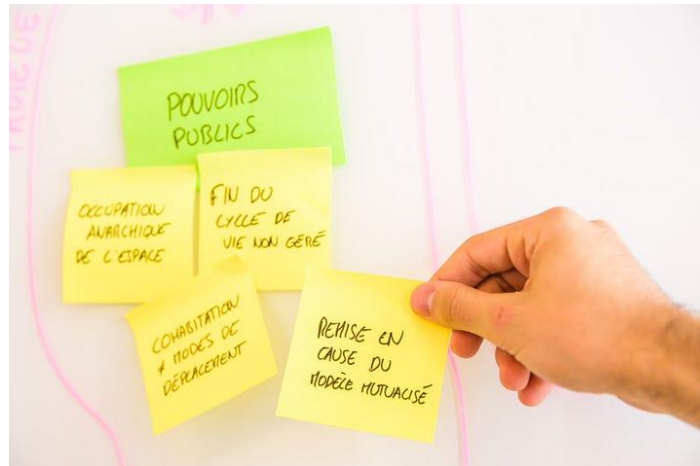 POUVOIRS
PUBLICS
OCCUPATION
ANARCHIQUE
DE L'ESPACE
FIN DU
CYCLE DE
VIE NON GÉRÉ
COHABITATION
≠ MODES DE
DÉPLACEMENT
REMISE EN
CAUSE DU
MODÈLE MUTUALISÉ